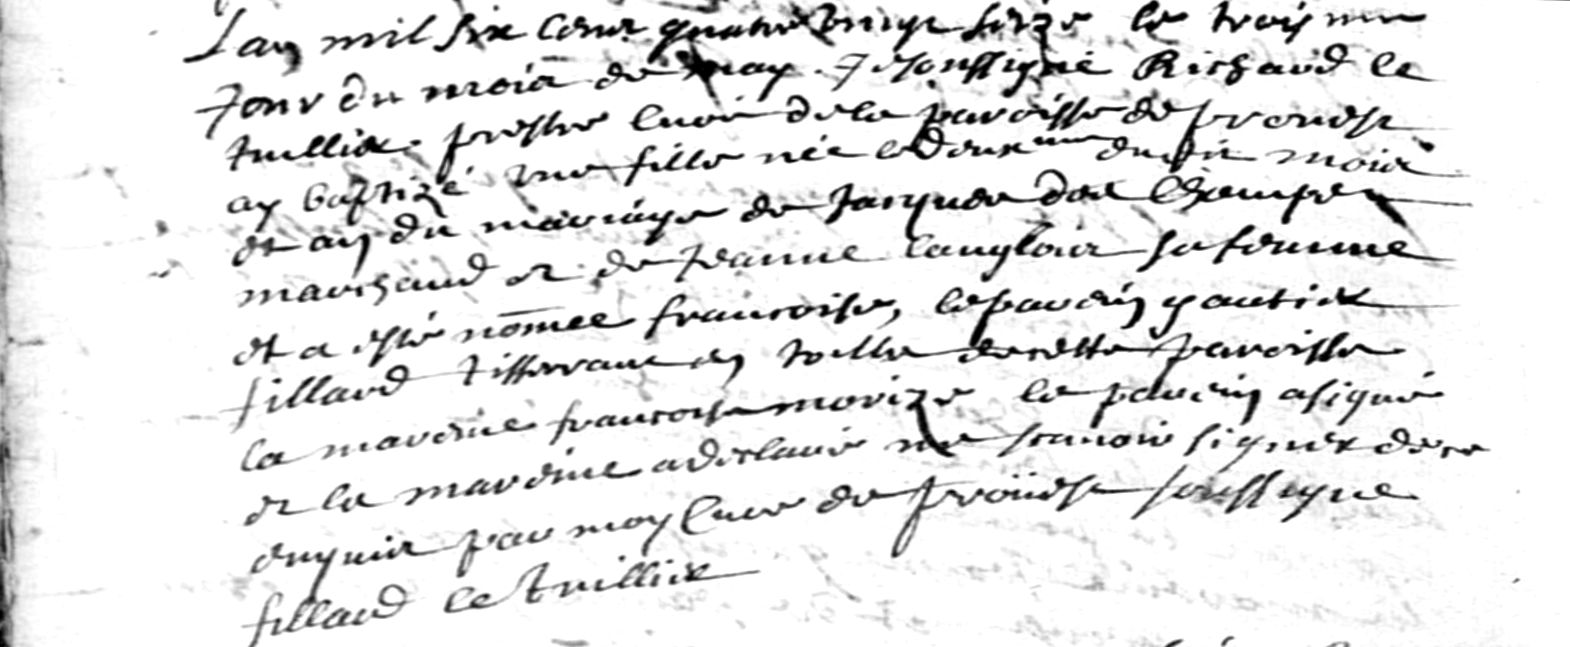 Lan mil six cent quatre vingt seize le troisime
Jour du mois de may Je soussigné Richard le
tuillier prestre curé de la paroisse de prouest
ay baptizé une fille née le deuxme dudit mois
et an du mariage de Jacques des Champs
marchand et de Jeanne langlois sa femme
et a esté nōmee francoise, le parein gautier
fillard tisserant en toille de cette paroisse
la mareine francoise morize le parein a signé
et la mareine a declaré ne scauoir signer de ce
enquis par moy Curé de proüest soussigné
fillard le tuillier